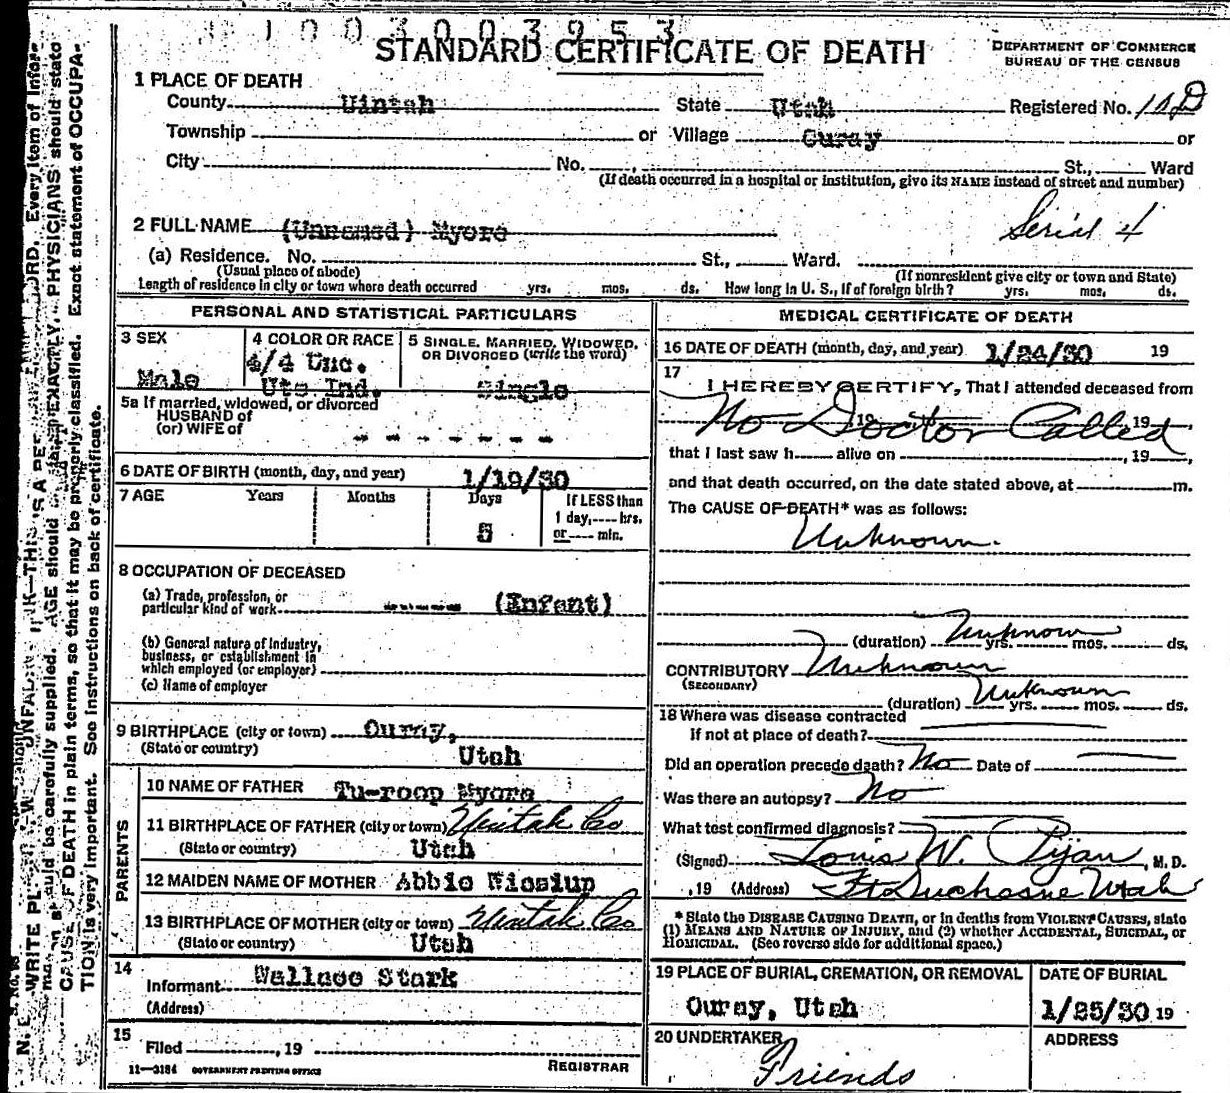 1003003953
STANDARD CERTIFICATE OF DEATH
DEPARTMENT OF COMMERCE
BUREAU OF THE CENSUS
1 PLACE OF DEATH
County Uintah State Utah Registered No.
Township or Village Ouray or
City No. , St., Ward
(If death occurred in a hospital or institution, give its NAME instead of street and number)
2 FULL NAME (Unnamed) Myore Serial 4
(a) Residence. No. St., Ward.
(Usual place of abode) (If nonresident give city or town and State)
Length of residence in city or town where death occurred yrs. mos. ds. How long in U. S., if of foreign birth? yrs. mos. ds.
PERSONAL AND STATISTICAL PARTICULARS
3 SEX
Male
4 COLOR OR RACE
4/4 Unc.
Ute Ind.
5 SINGLE, MARRIED, WIDOWED,
OR DIVORCED (write the word)
Single
5a If married, widowed, or divorced
HUSBAND of
(or) WIFE of
6 DATE OF BIRTH (month, day, and year) 1/19/30
7 AGE Years Months Days If LESS than
1 day, ---- hrs.
5 or ---- min.
8 OCCUPATION OF DECEASED
(a) Trade, profession, or
particular kind of work (Enfant)
(b) General nature of industry,
business, or establishment in
which employed (or employer)
(c) Name of employer
9 BIRTHPLACE (city or town) Ouray,
(State or country) Utah
PARENTS
10 NAME OF FATHER Tu-roop Myore
11 BIRTHPLACE OF FATHER (city or town) Uintah Co
(State or country) Utah
12 MAIDEN NAME OF MOTHER Abbie
13 BIRTHPLACE OF MOTHER (city or town) Uintah Co
(State or country) Utah
14
Informant Wallace Stark
(Address)
15
Filed , 19
REGISTRAR
11—3184 GOVERNMENT PRINTING OFFICE
MEDICAL CERTIFICATE OF DEATH
16 DATE OF DEATH (month, day, and year) 1/24/30 19
17
I HEREBY CERTIFY, That I attended deceased from
No Doctor Called 19 , 19 ,
that I last saw h alive on , 19 ,
and that death occurred, on the date stated above, at m.
The CAUSE OF DEATH* was as follows:
Unknown.
(duration) Unknown yrs. mos. ds.
CONTRIBUTORY Unknown
(SECONDARY)
(duration) Unknown yrs. mos. ds.
18 Where was disease contracted
If not at place of death?
Did an operation precede death? No Date of
Was there an autopsy? No
What test confirmed diagnosis?
(Signed) Louis W. , M. D.
, 19 (Address) Ft Duchesne Utah
* State the DISEASE CAUSING DEATH, or in deaths from VIOLENT CAUSES, state
(1) MEANS AND NATURE OF INJURY, and (2) whether ACCIDENTAL, SUICIDAL, or
HOMICIDAL. (See reverse side for additional space.)
19 PLACE OF BURIAL, CREMATION, OR REMOVAL
Ouray, Utah
DATE OF BURIAL
1/25/30 19
20 UNDERTAKER
Friends
ADDRESS
Every item of infor-
should be carefully supplied. AGE should EXACTLY. PHYSICIANS should state
CAUSE OF DEATH in plain terms, so that it may be properly classified. Exact statement of OCCUPA-
TION is very important. See instructions on back of certificate.